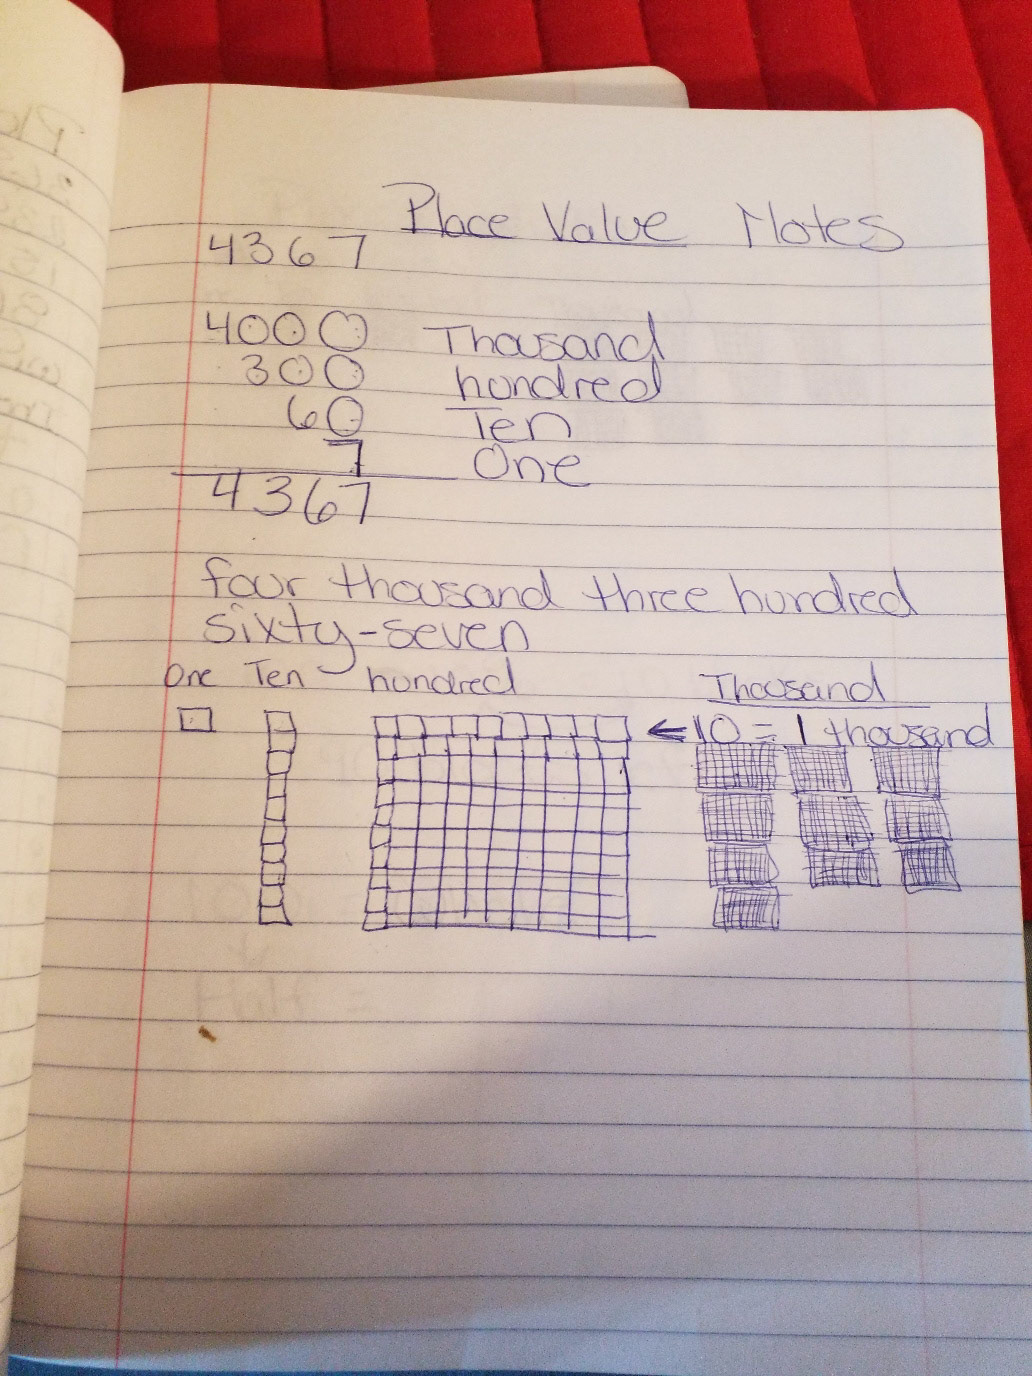 Place Value Notes
4367
4000 Thousand
300 hundred
60 Ten
7 One
4367
four thousand three hundred
sixty-seven
One Ten hundred Thousand
←10 = 1 thousand